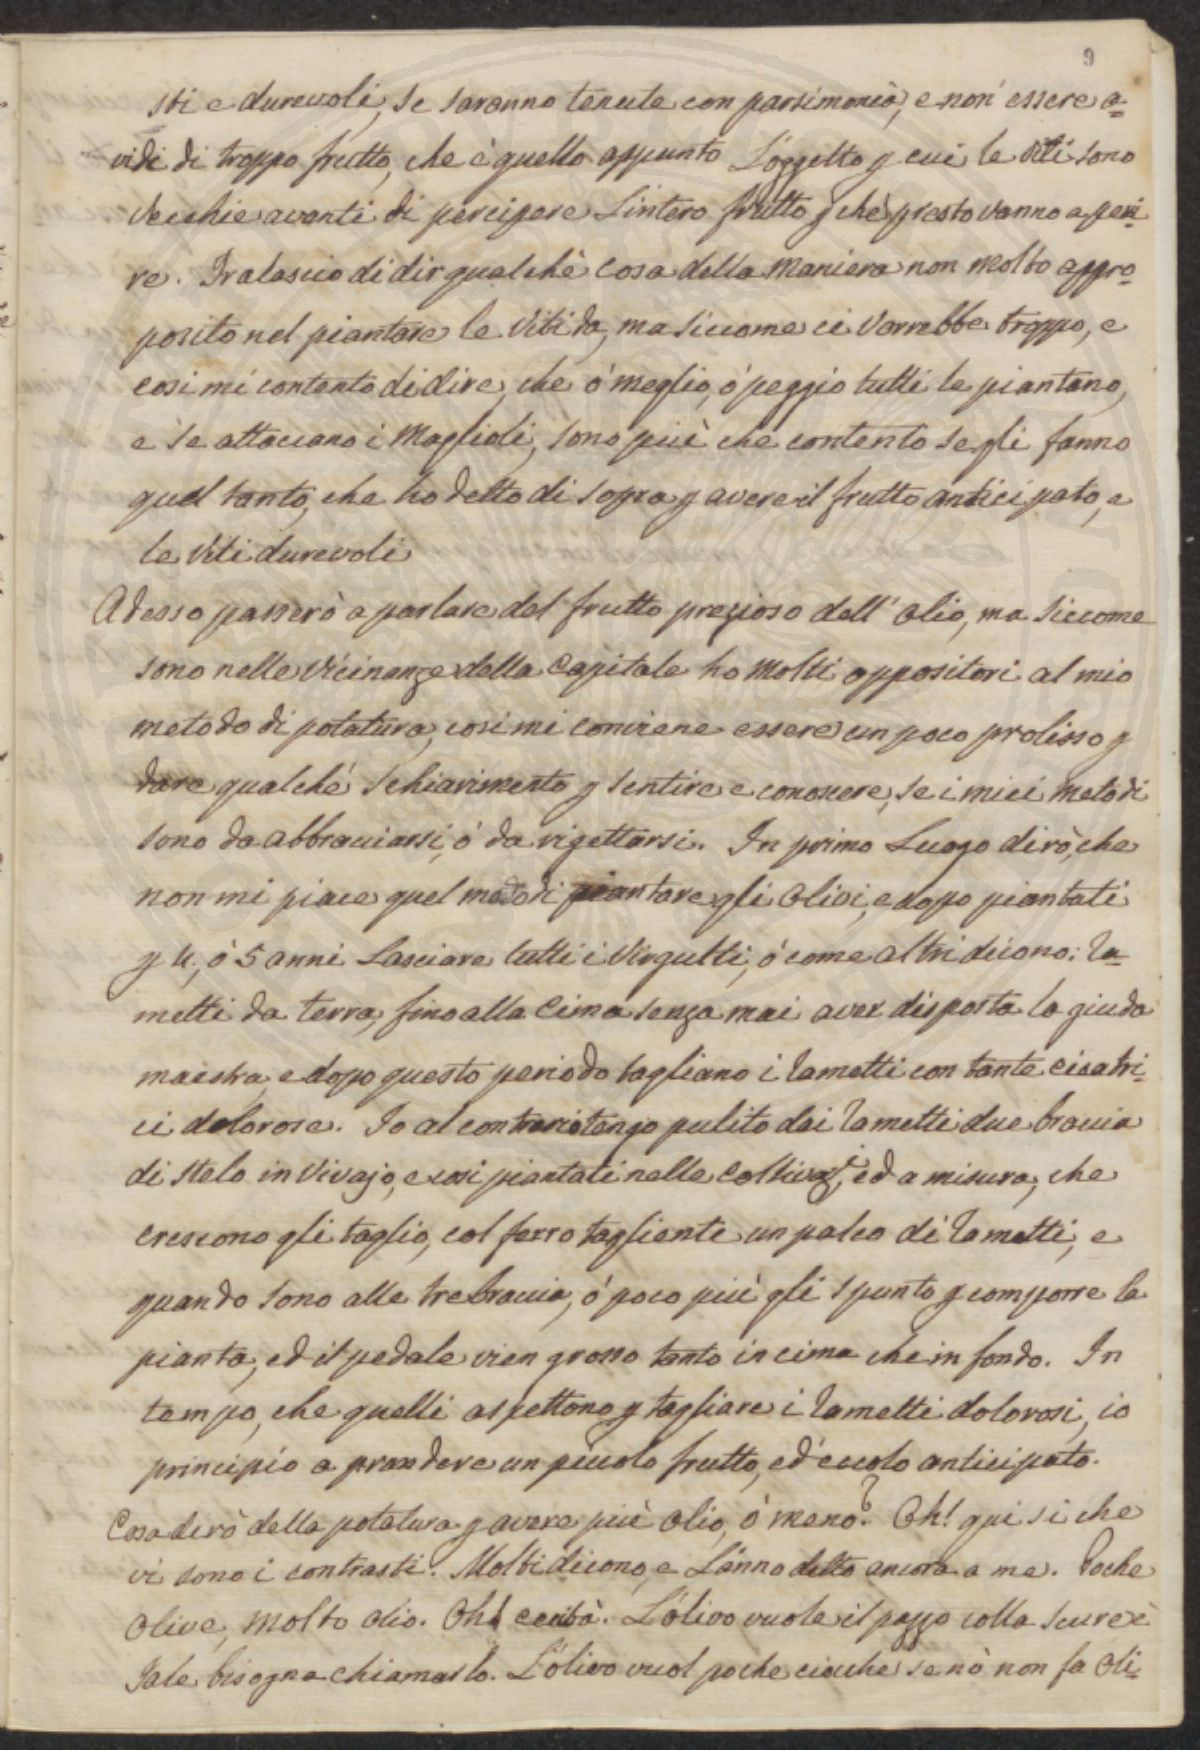 9
sti e durevoli, se saranno tenute con parsimonia, e non' essere a=
vidi di troppo frutto, che è quello appunto L'oggetto p cui le viti sono
Vecchie avanti di percipere L'intero frutto p chè presto vanno a peri=
re. Tralascio di dir qualchè cosa della maniera non molto appro=
posito nel piantare le Viti da, ma siccome ci vorrebbe troppo, e
così mi contento di dire, che ò meglio, ò peggio tutti le piantano,
e se attaccano i Maglioli, sono più che contento se gli fanno
quel tanto, che ho detto di sopra p avere il frutto anticipato, e
le Viti durevoli
Adesso passerò a parlare del frutto prezioso dell' olio, ma siccome
sono nelle vicinanze della Capitale ho molti oppositori al mio
metodo di potatura, così mi conviene essere un poco prolisso p
dare qualchè schiarimento p sentire e conoscere, se i miei metodi
sono da abbracciarsi, ò da rigettarsi. In primo Luogo dirò, che
non mi piace quel modo di piantare gli olivi, e dopo piantati
p 4, ò 5 anni Lasciare tutti i Virgulti, ò come altri dicono: ra=
metti da terra, fino alla Cima senza mai aver disposta la giuda
maestra, e dopo questo periodo tagliano i rametti con tante cicatri=
ci dolorose. Io al contrario tengo pulito dai rametti due braccia
di stelo in Vivajo, e così piantati nelle coltivazi, ed a misura, che
crescono gli taglio, col ferro tagliente un palco di rametti, e
quando sono alle tre braccia, ò poco più gli spunto p comporre la
pianta, ed il pedale vien grosso tanto in cima che in fondo. In
tempo, che quelli aspettono p tagliare i rametti dolorosi, io
principio a prendere un piccolo frutto, ed eccolo anticipato.
Cosa dirò della potatura p avere più olio, ò meno? Oh! qui si che
vi sono i contrasti. Molti dicono, e L'anno detto ancora a me. Poche
olive, molto olio. Oh! L'olivo vuole il pazzo colla scure è
Tale bisogna chiamarlo. L'olivo vuol poche ciocche se nò non fa oli=